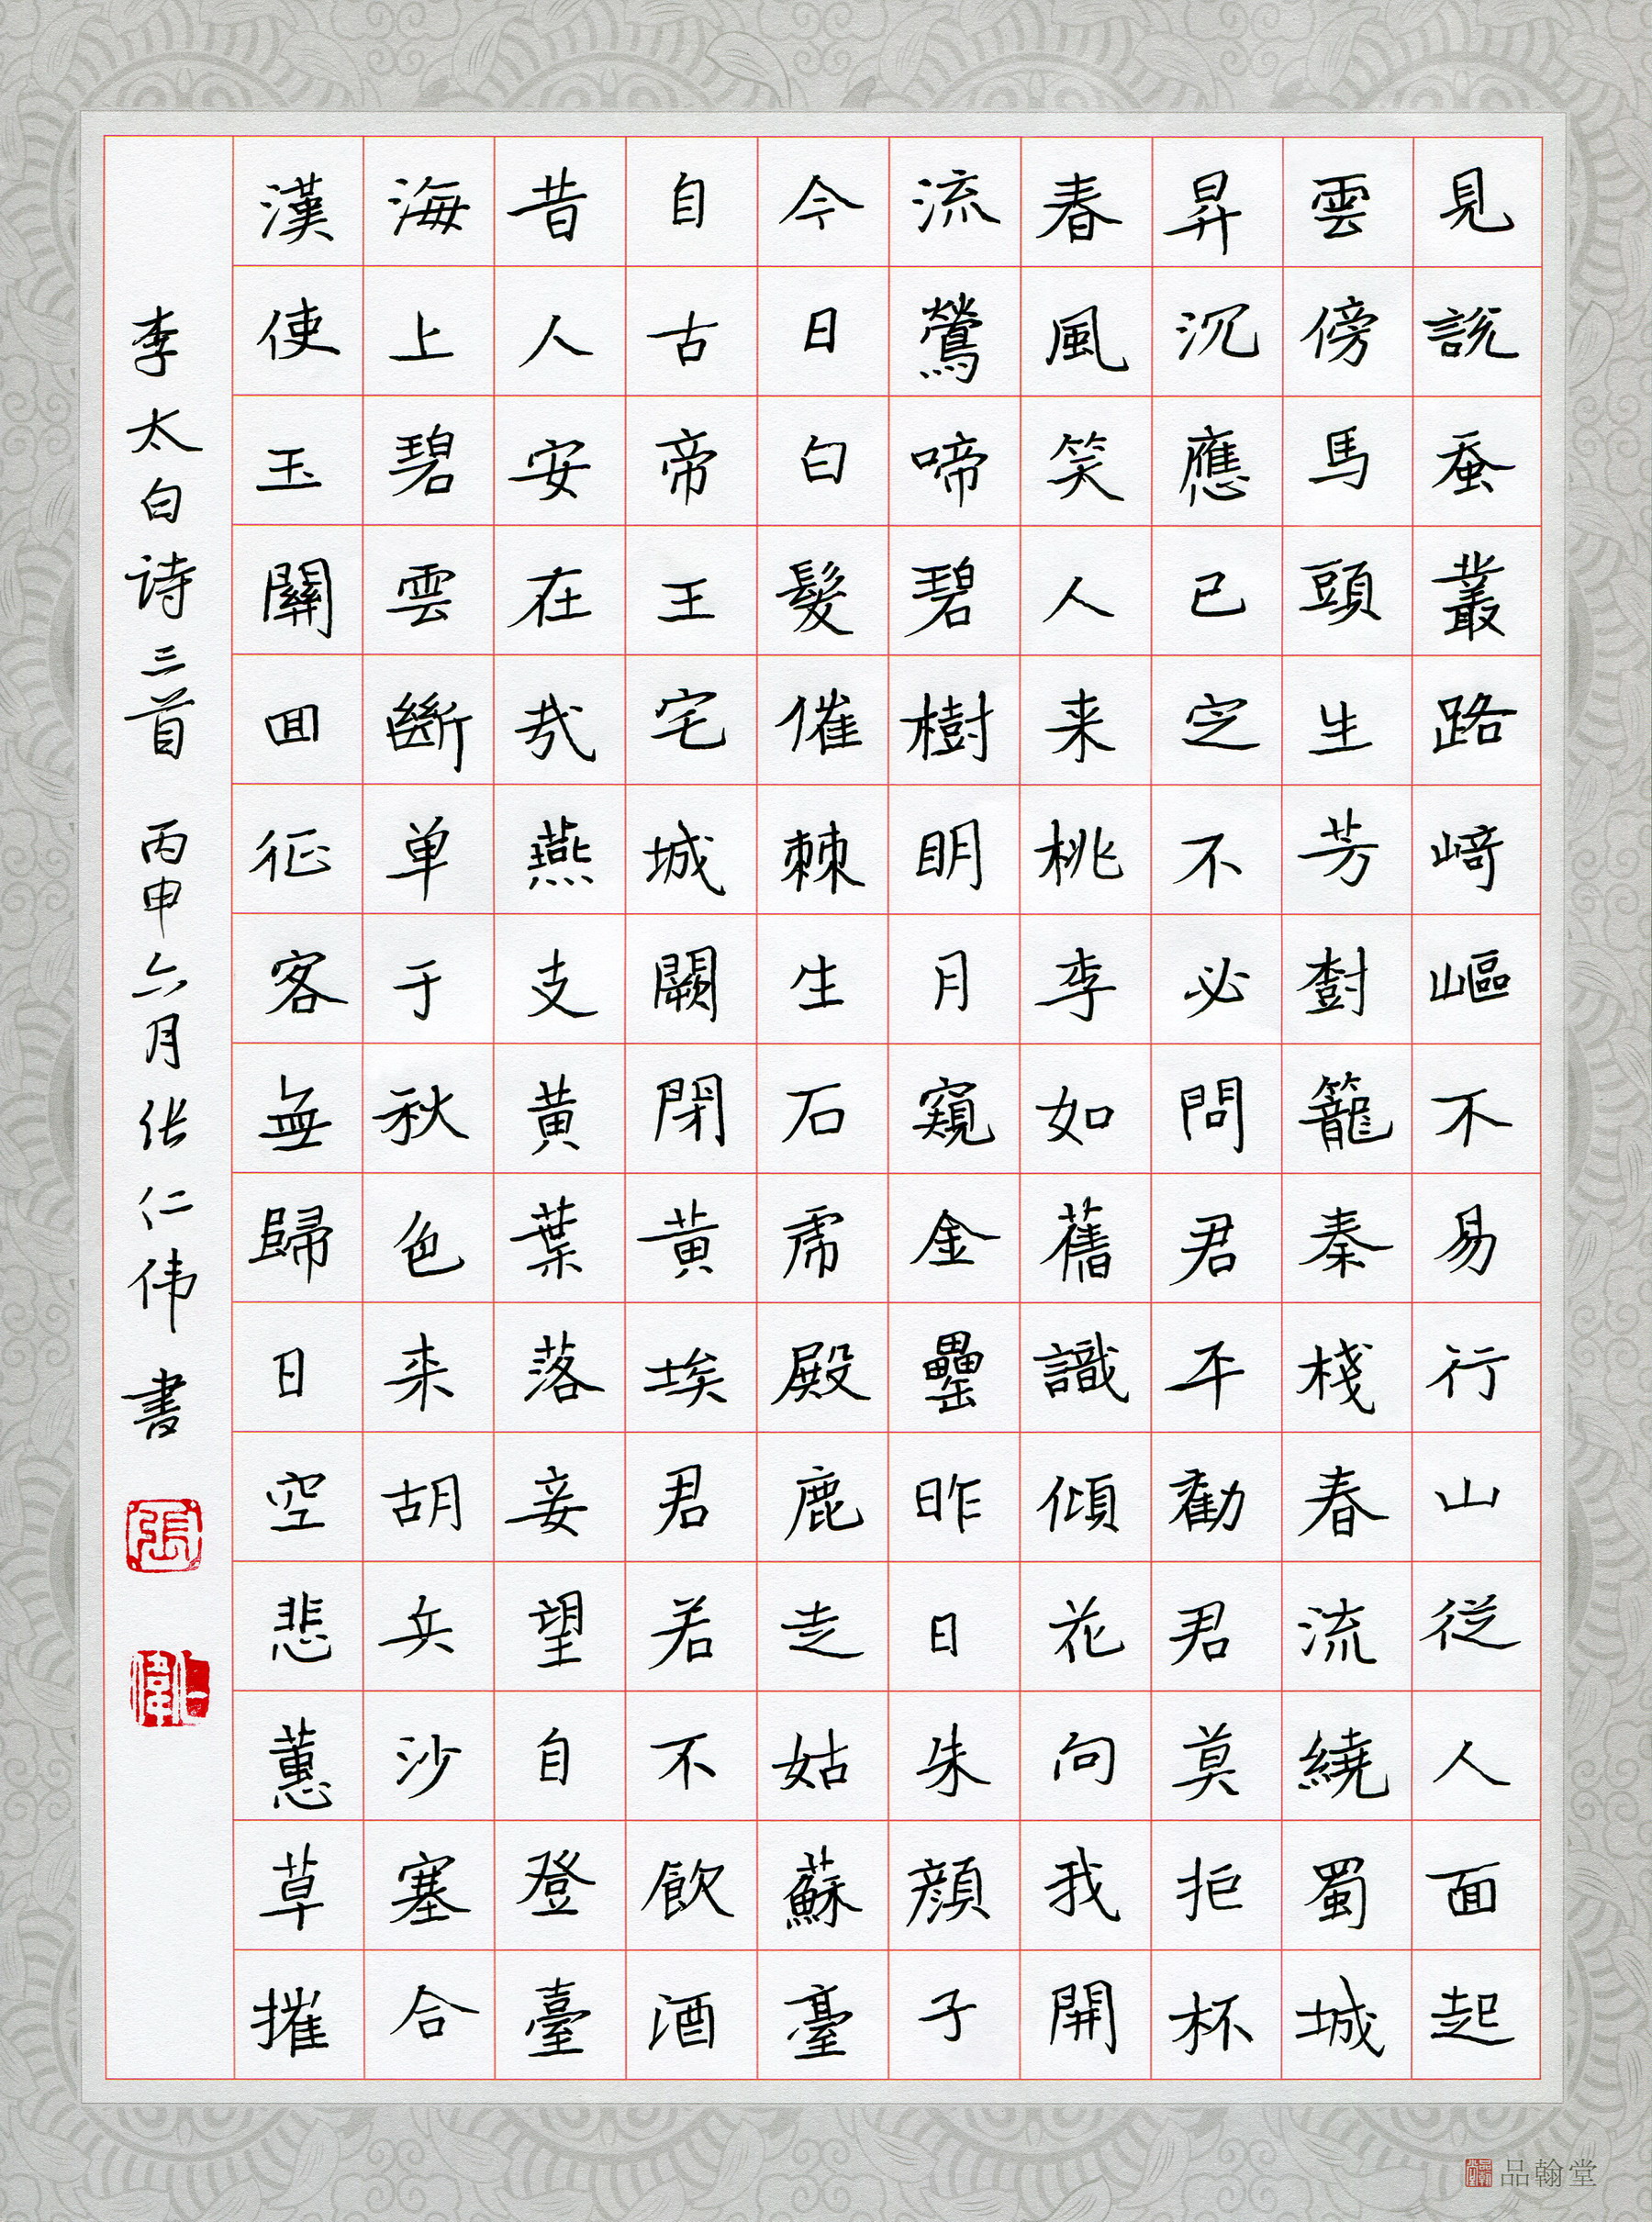 見說蚕叢路﨑嶇不易行山從人面起
雲傍馬頭生芳樹籠秦棧春流繞蜀城
昇沉應已定不必問君平勸君莫拒杯
春風笑人来桃李如舊識傾花向我開
流鶯啼碧樹明月窺金罍昨日朱顏子
今日白髮催棘生石虎殿鹿走姑蘇臺
自古帝王宅城闕閉黃埃君若不飲酒
昔人安在哉燕支黃葉落妾望自登臺
海上碧雲斷单于秋色来胡兵沙塞合
漢使玉關回征客無歸日空悲蕙草摧
李太白诗三首 丙申六月张仁伟書
張
仁偉
品翰堂